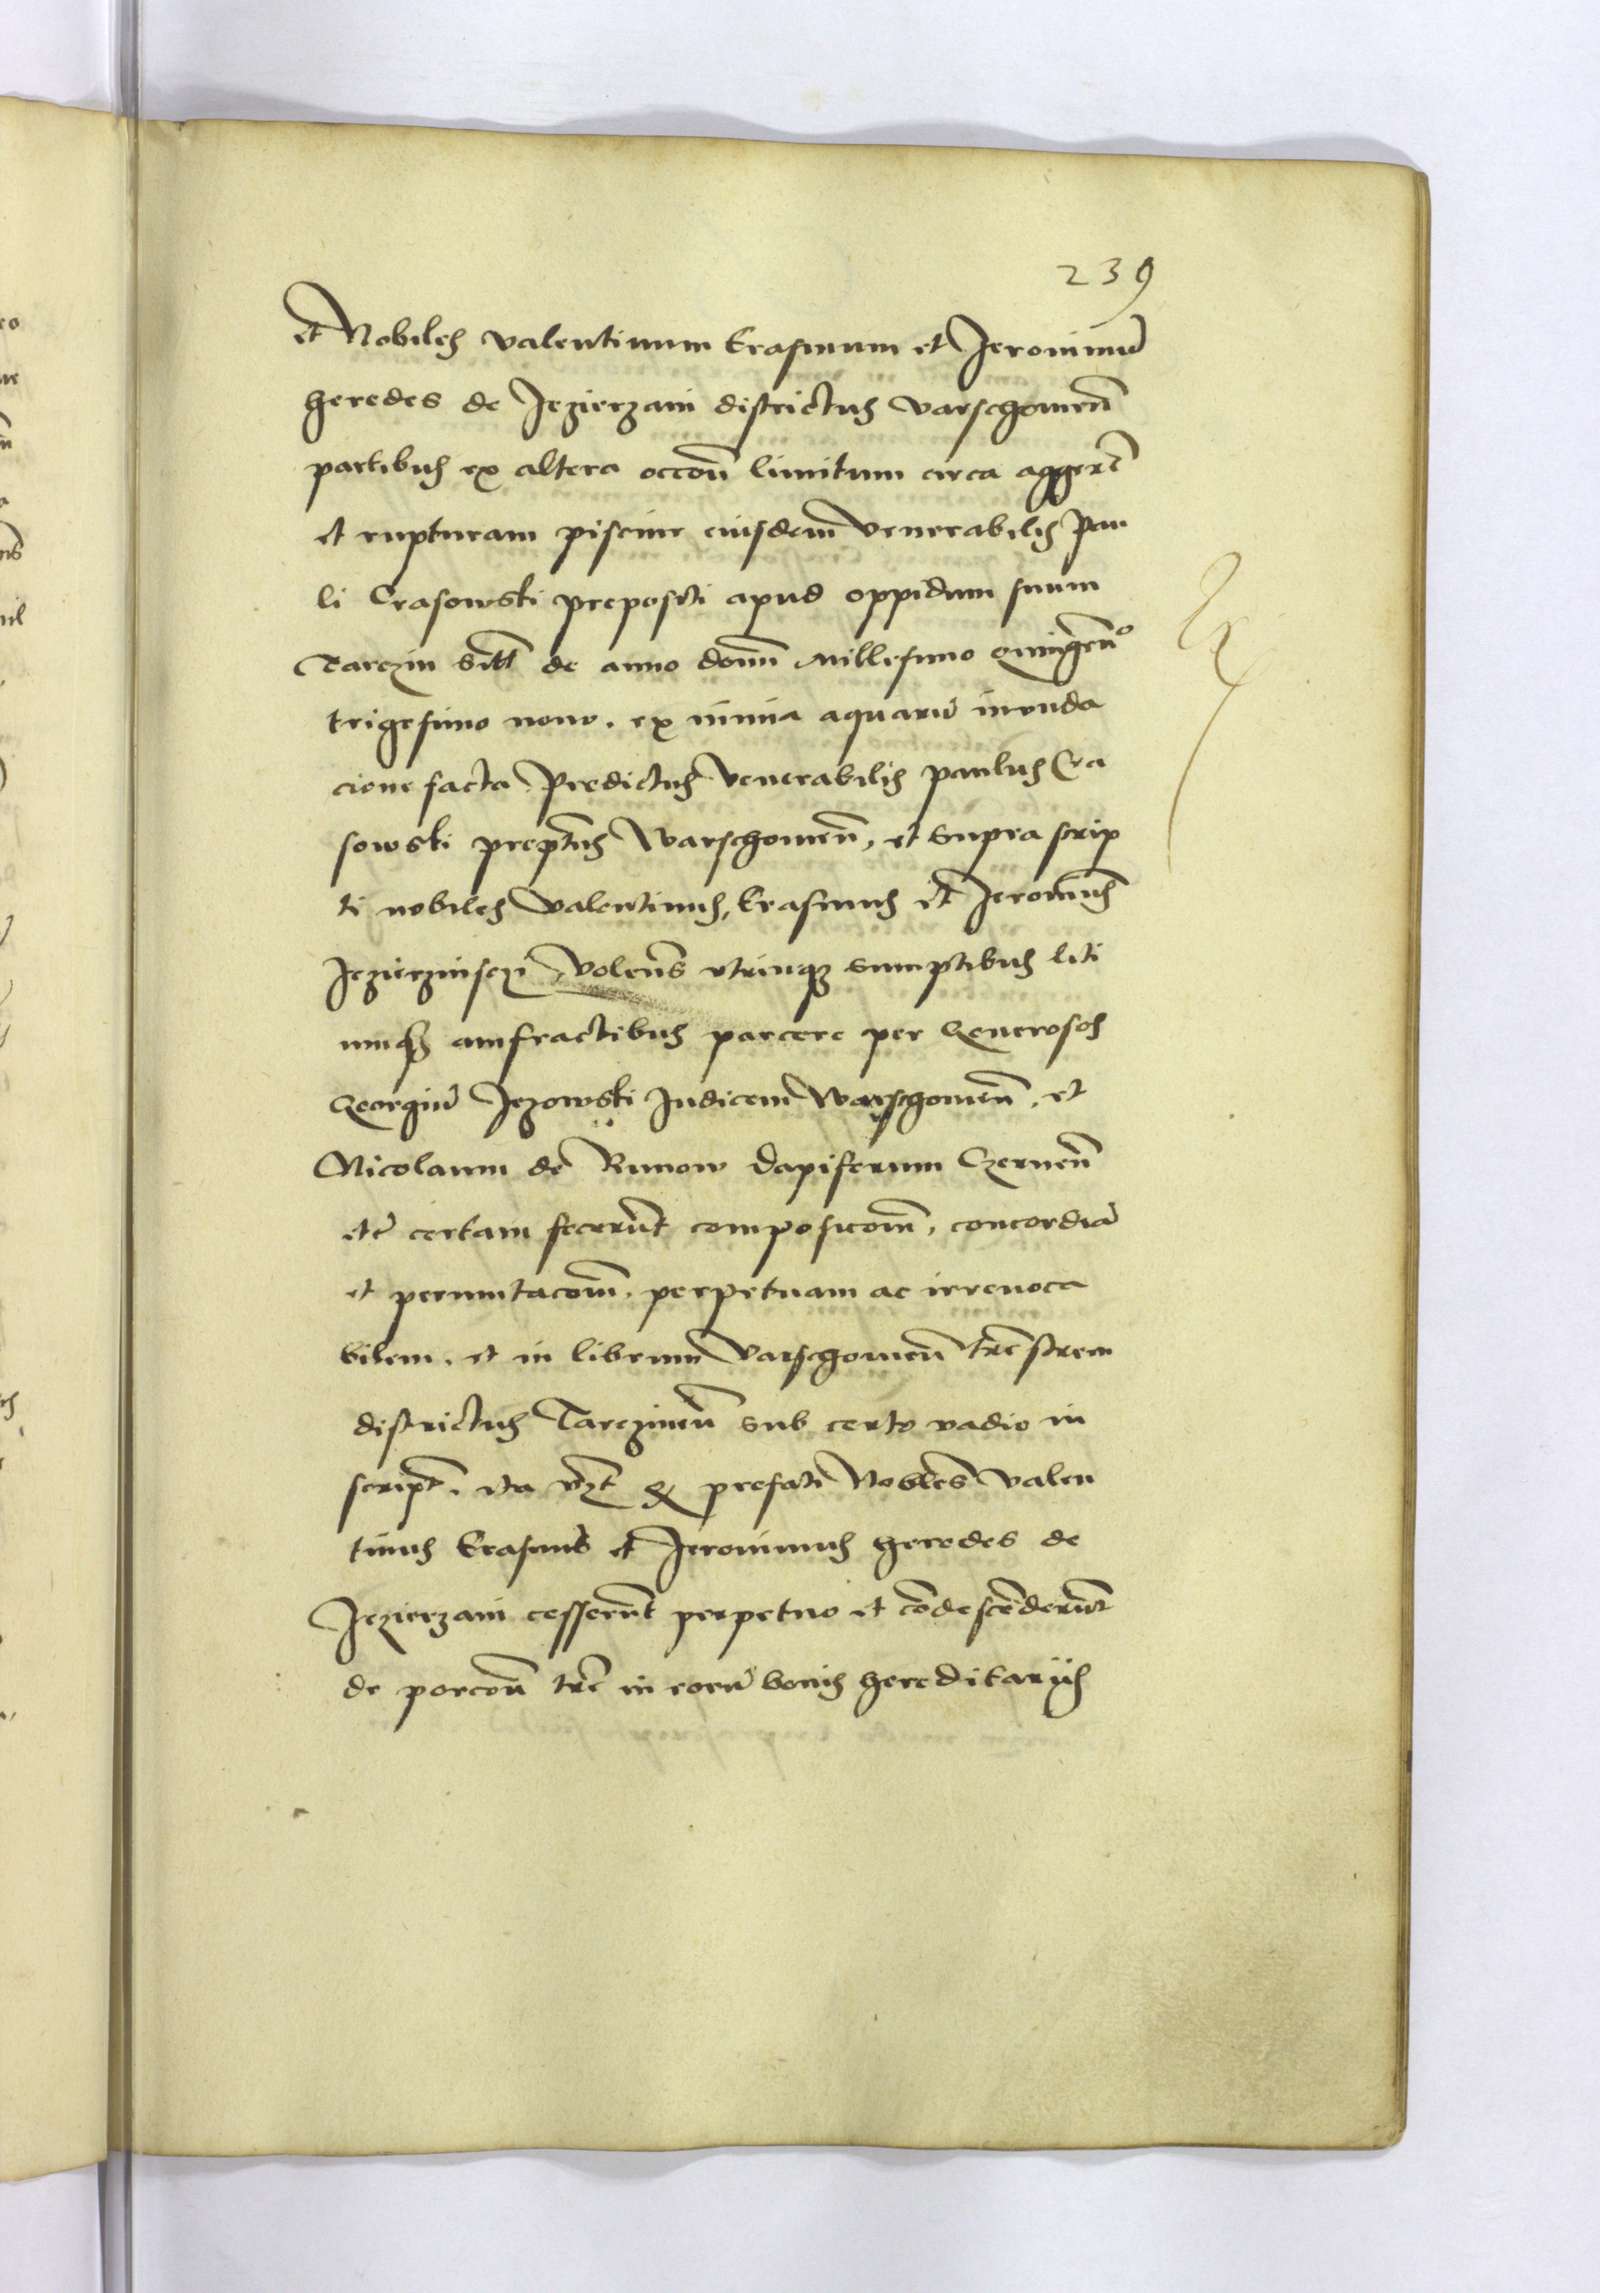 239
et Nobiles Valentinum Erasmum et Jeronimū
heredes de Jezierzani districtus Varschouien̄
partibus ex altera occōn̄ limitum circa aggerē
et rupturam piscine eiusdem Venerabilis Pau
li Crasowski prepositi apud oppidum suum
Tarczin de anno domī Millesimo quingen̄º
trigesimo nono. ex nimia aquarū inunda
cione facta Predictus Venerabilis Paulus Cra
sowski prep̄tus Warschouien̄, et supra scrip
ti nobiles Valentinus, Erasmus et Jeronim̄us
volen̄s utrinq; sumptibus liti
umq; amfractibus parcere per Generosos
Georgiū Jezowski Judicem Warschouien̄, et
Nicolaum de Runow Dapiferum Czernen̄
etc̄ certam fecerūnt composicōm̄, concordiā
et permutacōm̄. perpetuam ac irreuoca
bilem. et in librum Varschouien̄ trēstrem
districtus Tarczinen̄ sub certo vadio in
script̄. ita vzt̄ q̄ prefati Nobles̄ Valen
tinus Erasmus et Jeronimus heredes de
Jezierzani cesserūnt perpetuo et cōdescēderūnt
de porcōn̄ trē in eorū bonis hereditarijs